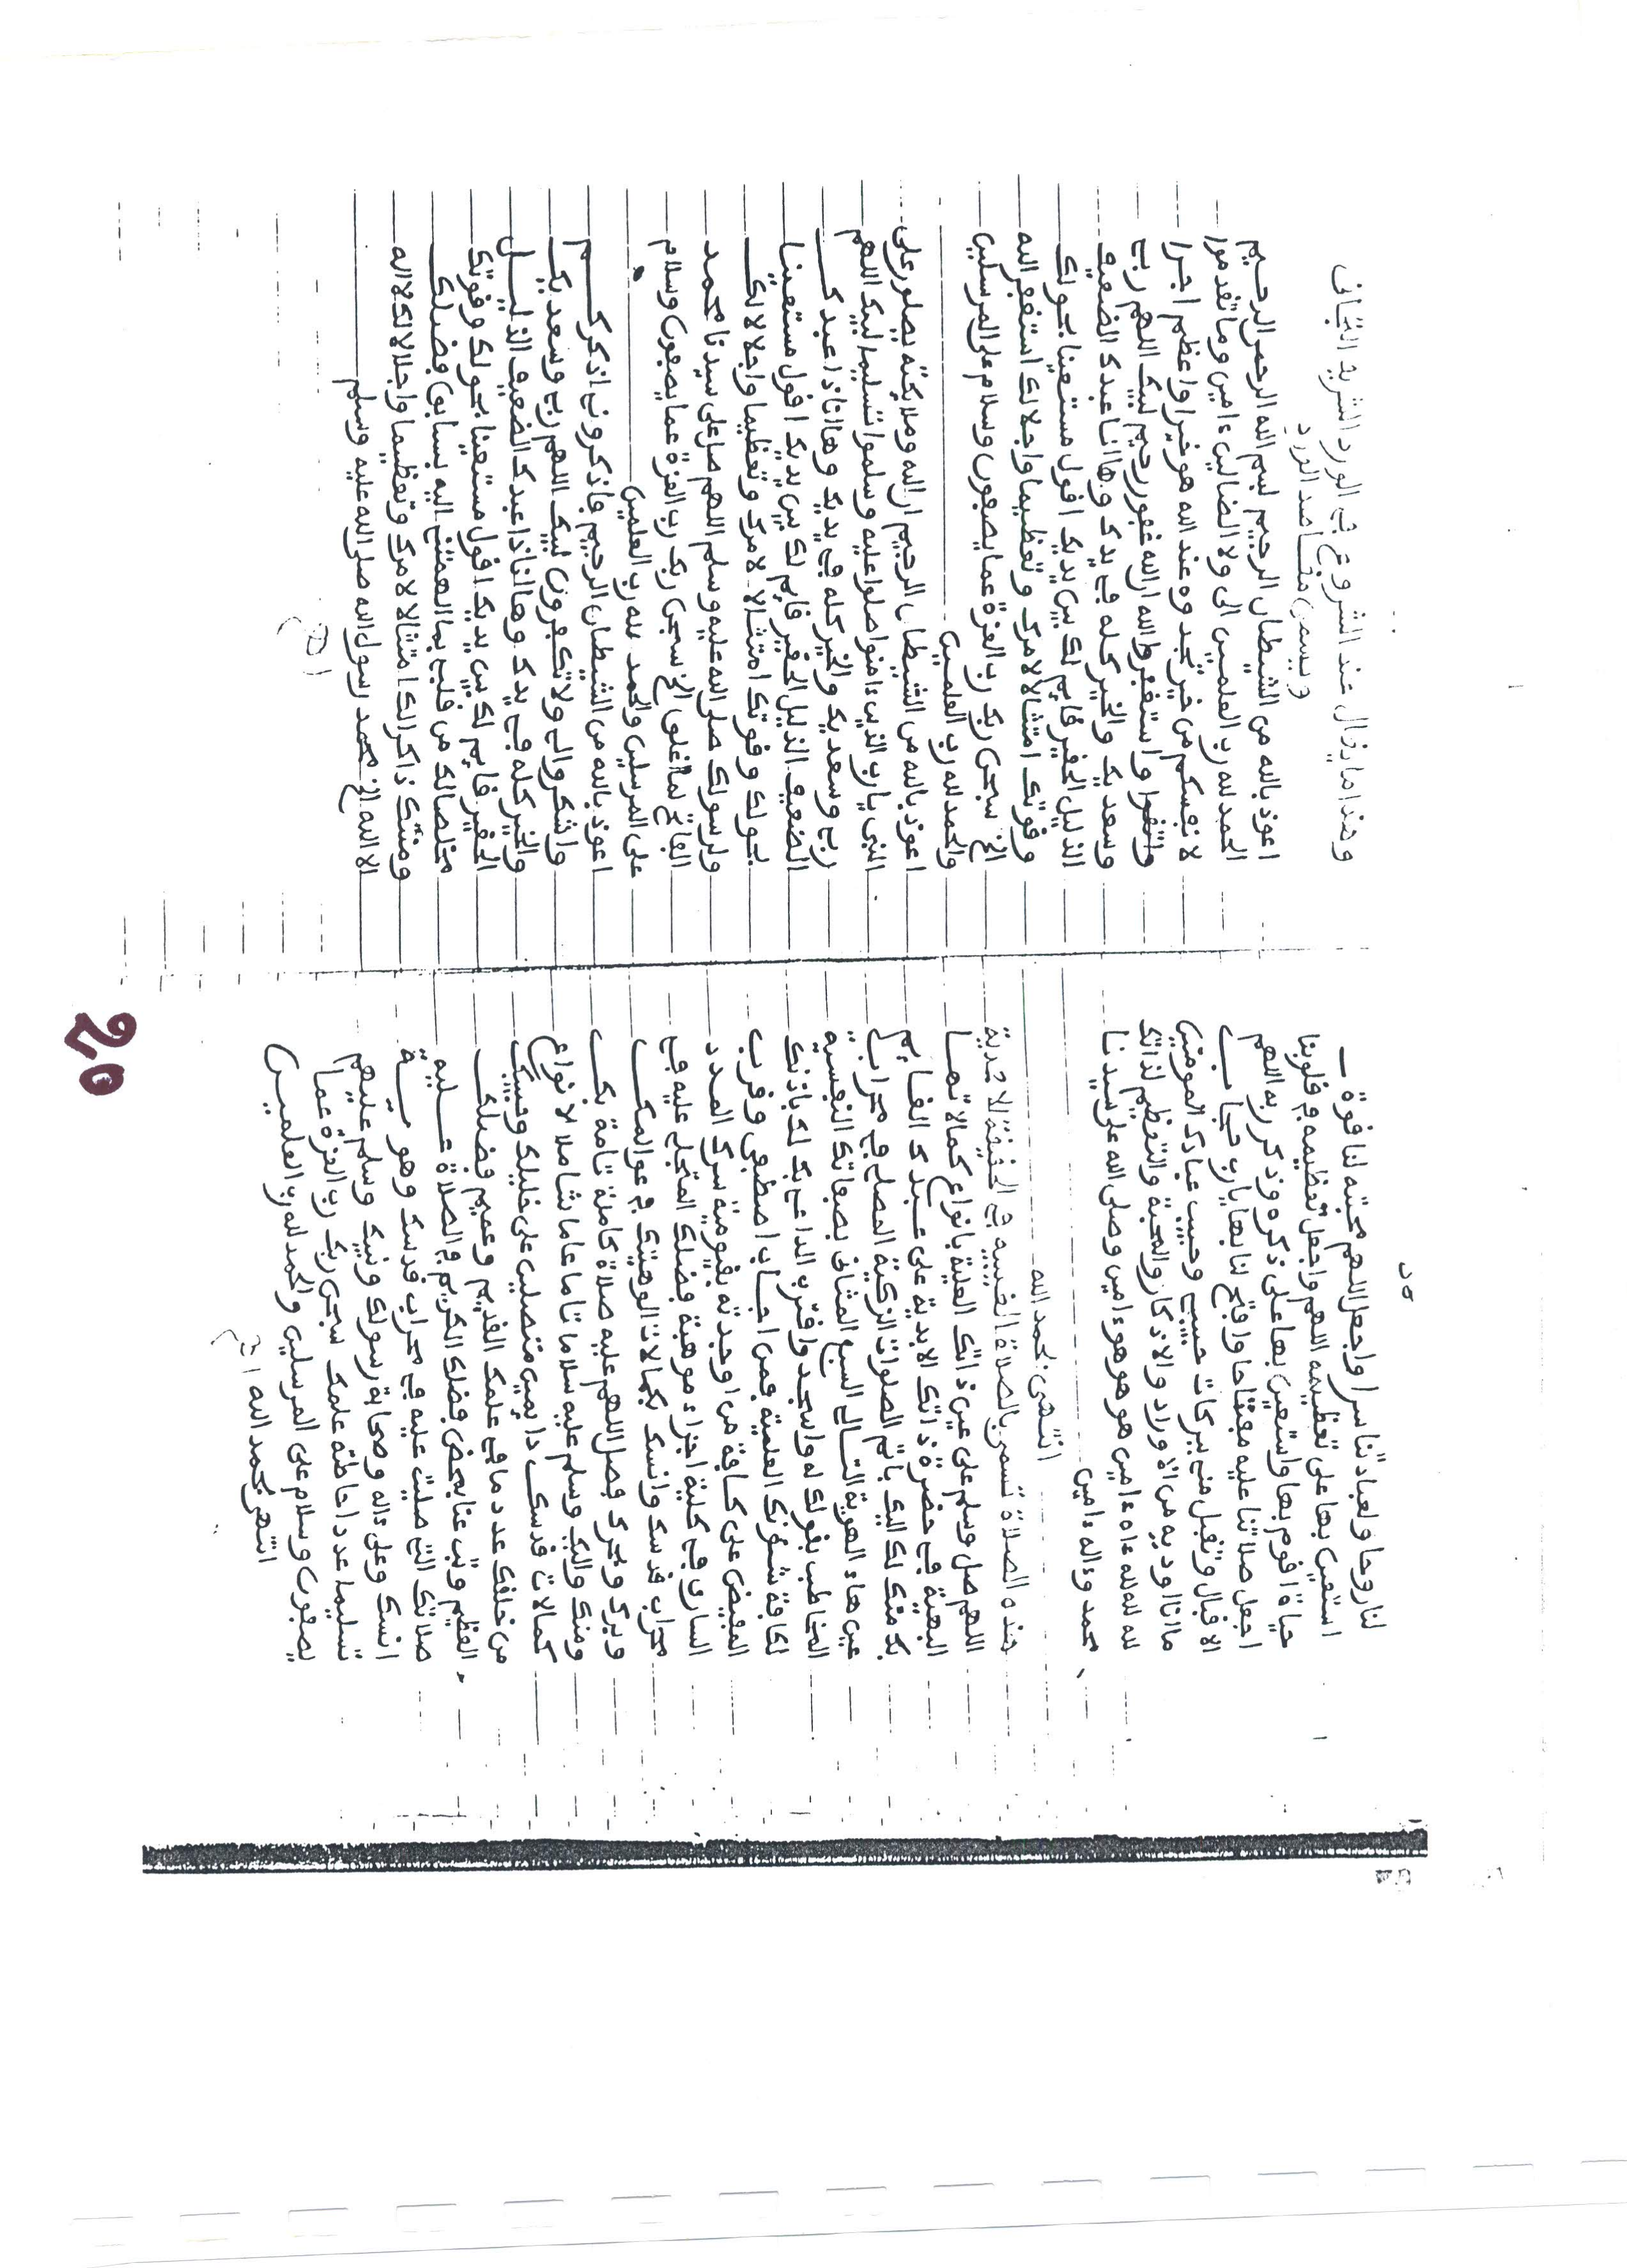 لنا روحا ولعبادتنا سرا واجعل اللهم محبته لنا قوة
استعين بها على تعظيمه اللهم واجعل تعظيمه في قلوبنا
حياة اقوم بها واستعين بها على ذكره وذكر ربه اللهم
اجعل صلاتنا عليه مفتاحا وافتح لنا بها يارب حجاب
الاقبال وتقبل مني ببركات حبيبي وحبيب عبادك المومنين
ما انا اوديه من الاوراد والاذكار والمحبة والتعظيم لذاتك
لله لله لله ءاه ءامين هو هو هو ءامين وصلى الله على سيدنا
محمد وءاله ءامين
انتهى بحمد الله
هذه الصلاة تسمى بالصلاة الغيبية في الحقيقة الاحمدية
اللهم صل وسلم على عين ذاتك العلية بانواع كمالاتها
البهية في حضرة ذاتك الابدية على عبدك القايم
بك منك لك اليك باتم الصلوات الزكية المصلي في محراب
عين هاء الهوية التالي السبع المثاني بصفاتك النفسية
المخاطب بقولك له واسجد واقترب الداعي بك لك باذنك
لكافة شئونك العلمية فمن اجاب اصطفي وقرب
المفيض على كافة من اوجدته بقيومية سرك المدد
الساري في كلية اجزاء موهبة فضلك المتجلي عليه في
محراب قدسك وانسك بكمالات الوهيتك في عوالمك
وبرك وبحرك فصل اللهم عليه صلاة كاملة تامة بك
ومنك واليك وسلم عليه سلاما تاما عاما شاملا لانواع
كمالات قدسك دايمين متصلين على خليلك وحبيبك
من خلقك عدد ما في علمك القديم وعميم فضلك
العظيم ونب عنا بمحض فضلك الكريم في الصلاة عليه
صلاتك التي صليت عليه في محراب قدسك وهوية
انسك وعلى ءاله وصحابة رسولك ونبيك وسلم عليهم
تسليما عدد احاطة علمك سبحن ربك رب العزة عما
يصفون وسلام على المرسلين والحمد لله رب العلمين
انتهى بحمد الله
وهذا ما يقال عند الشروع في الورد الشريف التجاني
ويسمى مقاصد الورد
اعوذ بالله من الشيطان الرجيم بسم الله الرحمن الرحيم
الحمد لله رب العلمين الى ولا الضالين ءامين وما تقدموا
لانفسكم من خير تجدوه عند الله هو خيرا واعظم اجرا
واستغفروا الله ان الله غفور رحيم لبيك اللهم ربي
وسعديك والخير كله في يديك وها انا عبدك الضعيف
الذليل الحقير قايم لك بين يديك اقول مستعينا بحولك
وقوتك امتثالا لامرك وتعظيما واجلالا لك استغفر الله
الخ سبحن ربك رب العزة عما يصفون وسلام على المرسلين
والحمد لله رب العلمين
اعوذ بالله من الشيطان الرجيم ان الله وملايكته يصلون على
النبي يايها الذين ءامنوا صلوا عليه وسلموا تسليما لبيك اللهم
ربي وسعديك والخير كله في يديك وها انا ذا عبدك
الضعيف الذليل الحقير قايم لك بين يديك اقول مستعينا
بحولك وقوتك امتثالا لامرك وتعظيما واجلالا لك
ولرسولك صلى الله عليه وسلم اللهم صل على سيدنا محمد
الفاتح لما اغلق الخ سبحن ربك رب العزة عما يصفون وسلام
على المرسلين والحمد لله رب العلمين
اعوذ بالله من الشيطان الرجيم فاذكروني اذكركم
واشكروا لي ولا تكفرون لبيك اللهم ربي وسعديك
والخير كله في يديك وها انا ذا عبدك الضعيف الذليل
الحقير قايم لك بين يديك اقول مستعينا بحولك وقوتك
مخلصا لك من قلبي بما الهمتني اليه بسابق فضلك
ومنتك ذاكرا لك امتثالا لامرك وتعظيما واجلالا لك لا اله
الا الله الخ محمد رسول الله صلى الله عليه وسلم
اهـ
20